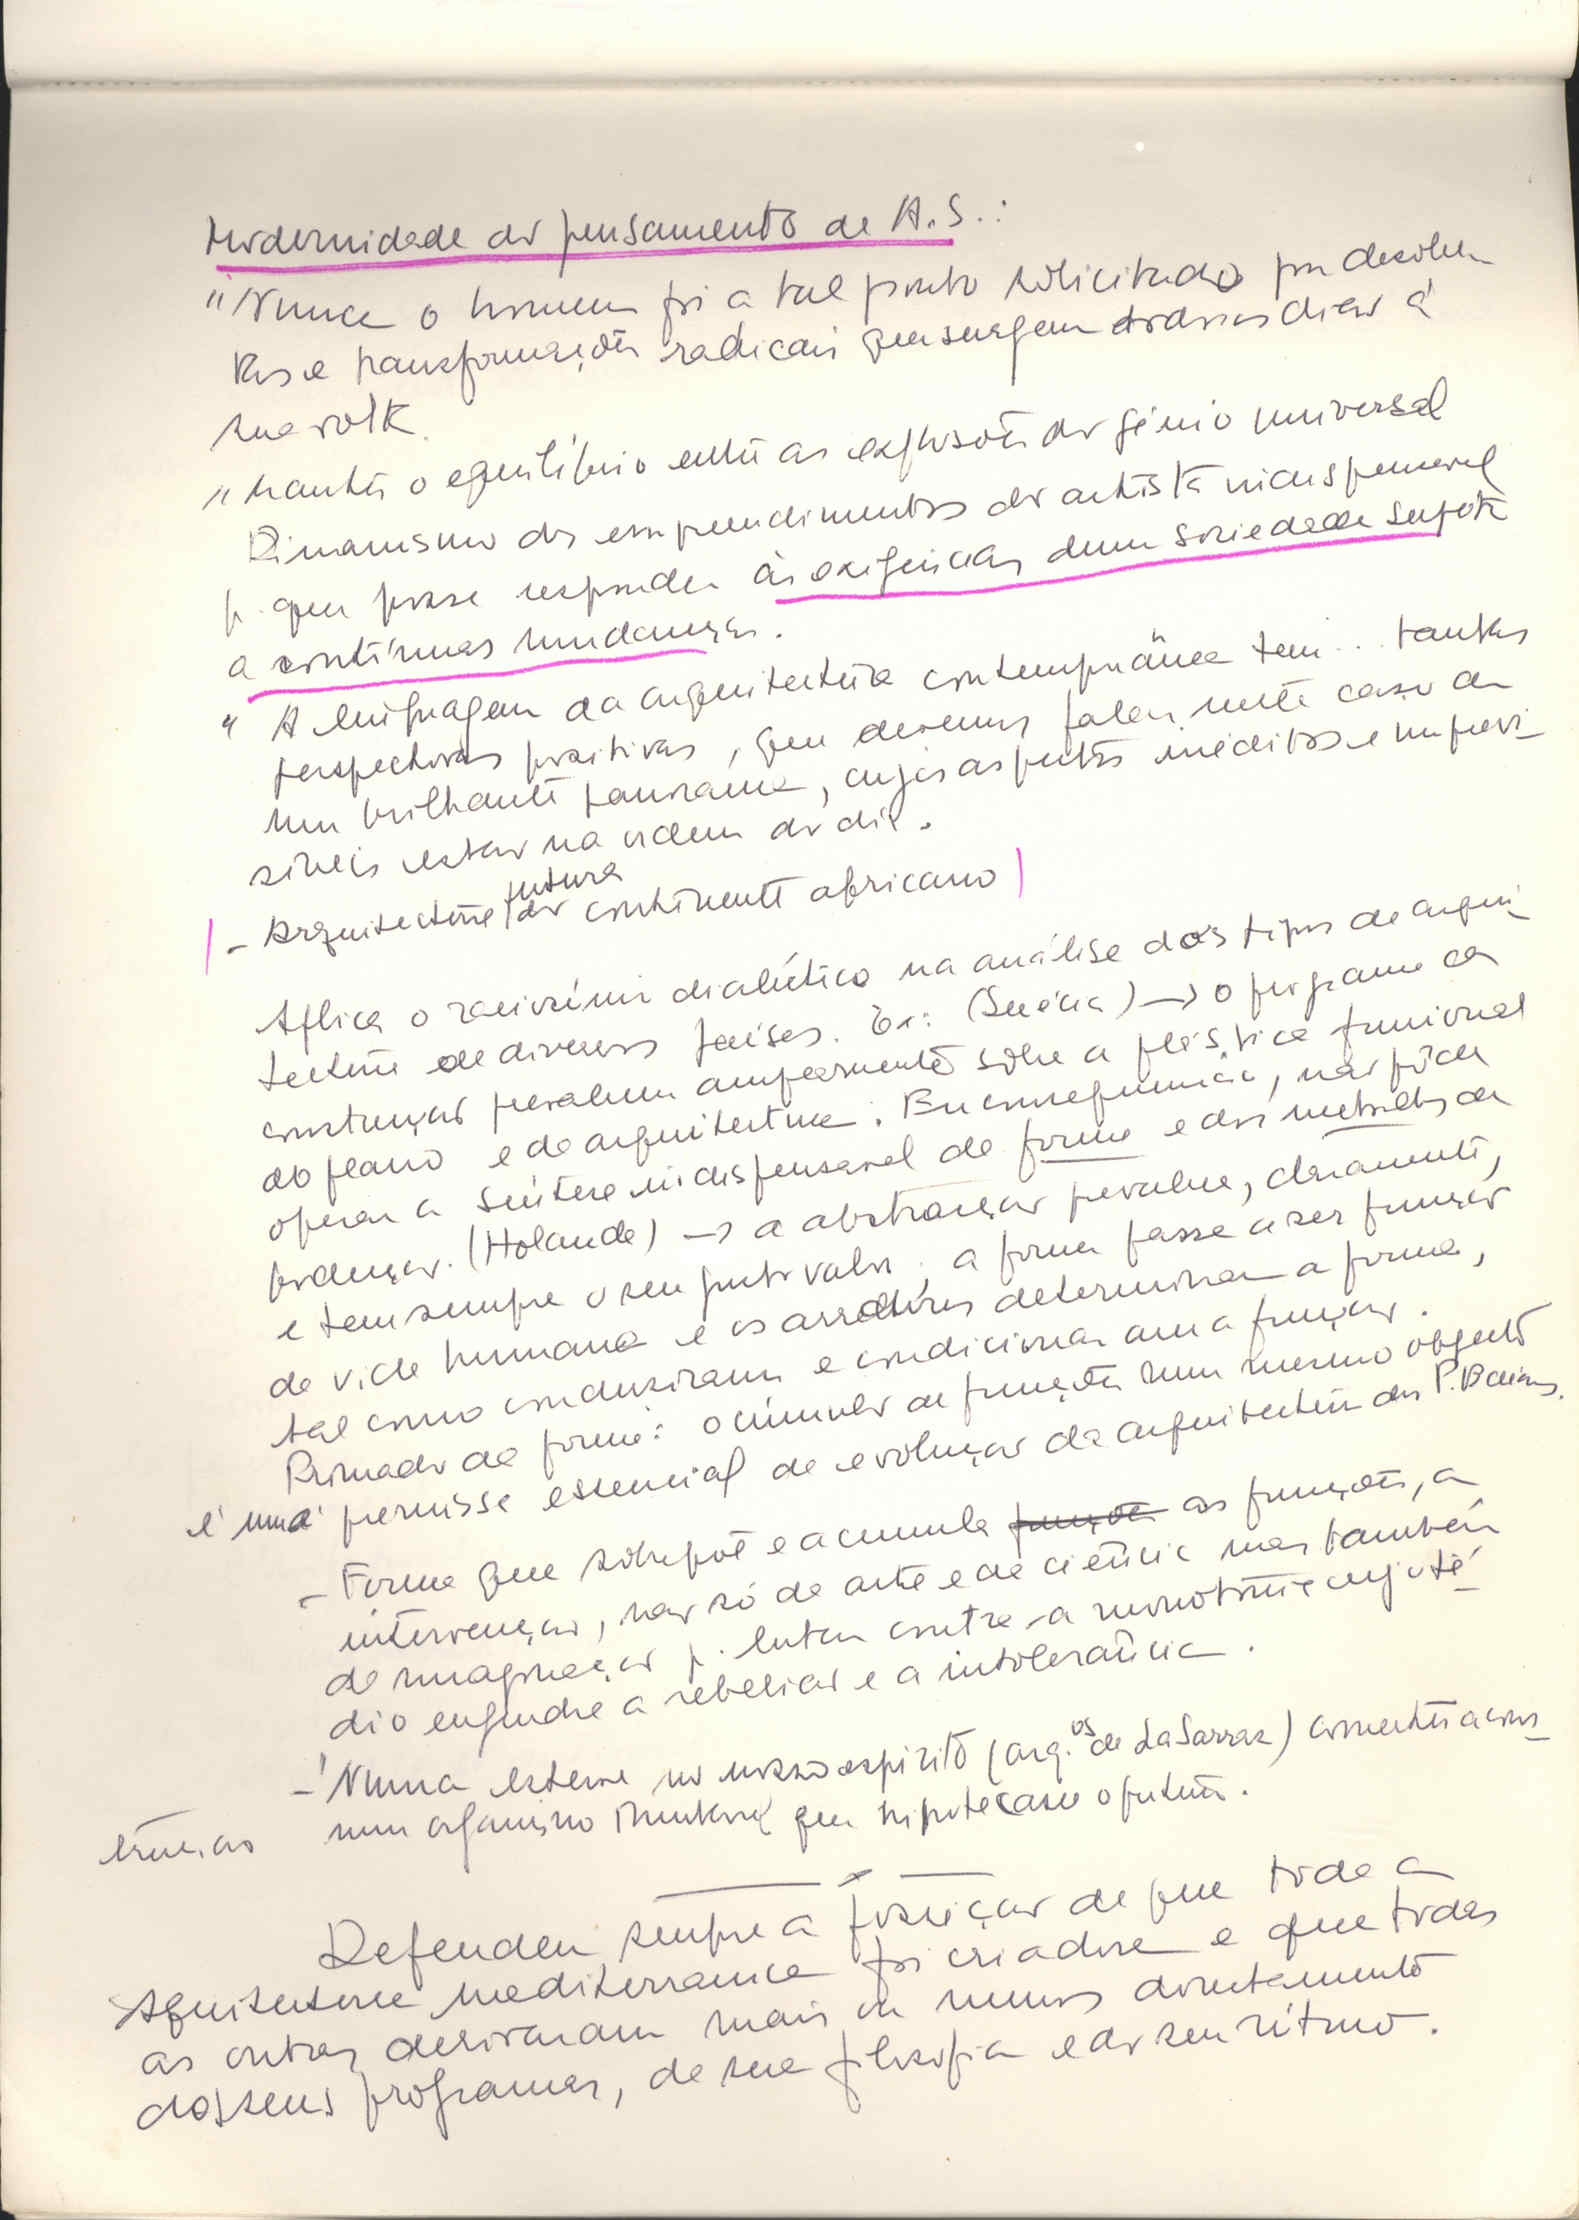 Modernidade do pensamento de A.S.:
"Nunca o homem foi a tal ponto solicitado por descober
tas e transformações radicais que surgem todos os dias à
sua volta.
" Manter o equilíbrio entre as explosões do génio universal
Dinamismo dos empreendimentos do artista indispensavel
p. que possa responder às exigencias duma sociedade sujeita
a contínuas mudanças.
" A linguagem da arquitectura contemporânea tem... tantas
perspectivas positivas, que devemos falar neste caso de
um brilhante panorama, cujos aspectos inéditos e imprevi-
síveis estão na ordem do dia.
- Arquitectura futura do continente africano
Aplica o raciocínio dialéctico na análise dos tipos de arqui-
tectura de diversos paises. Ex: (Suécia) → o programa da
construção prevalece amplamente sôbre a plástica funcional
do plano e da arquitectura. Em consequencia, não pôde
operar a síntese indispensavel da forma e dos metodos de
produção. (Holanda) → a abstração prevalece, claramente,
e tem sempre o seu justo valor; a forma passa a ser função
da vida humana e os arredores determinam a forma,
tal como conduziram e condicionaram a função.
Primado da forma: o cúmulo de funções num mesmo objecto
é uma premissa essencial da evolução da arquitectura dos P. Baixos.
- Forma que sobrepõe e acumula funções as funções, a
intervenção, não só da arte e da ciência mas também
da imaginação p. lutar contra a monotonia cujo té-
dio engendra a rebelião e a intolerância.
-"Nunca esteve no nosso espírito (arq.os de La Sarraz) converter a cons-
trução num organismo imutavel que hipotecasse o futuro.
Defendeu sempre a posição de que toda a
Arquitectura mediterranica foi criadora e que todas
as outras derivaram mais ou menos directamente
dos seus programas, da sua filosofia e do seu ritmo.